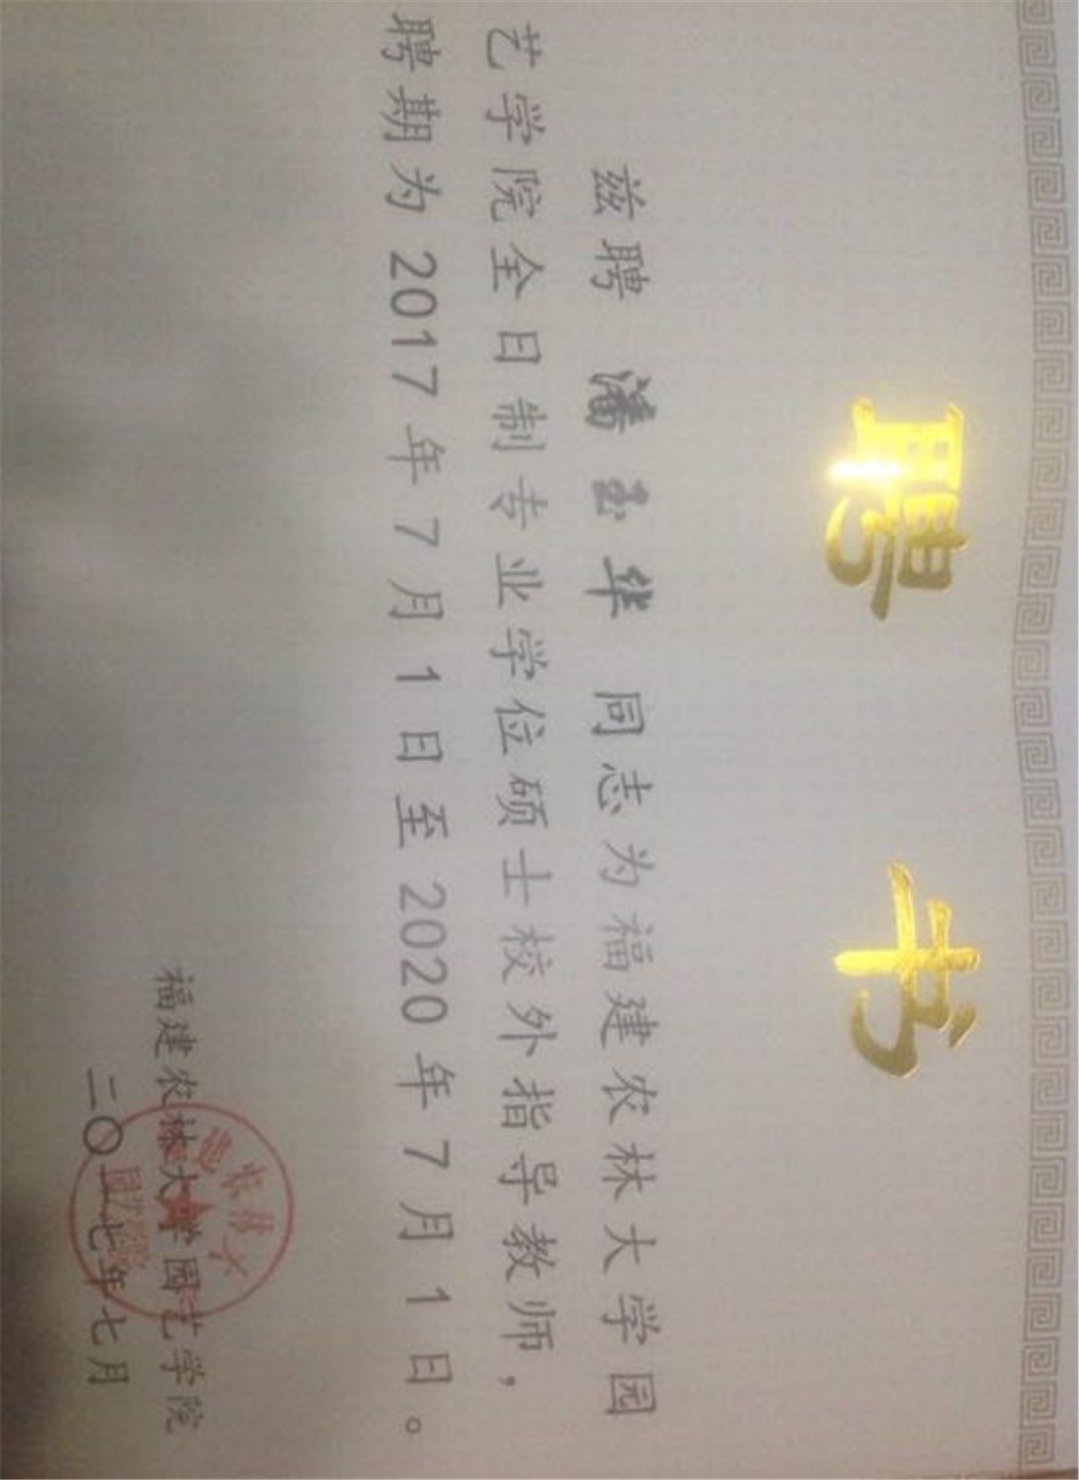 聘书
兹聘 潘玉华 同志为福建农林大学园
艺学院全日制专业学位硕士校外指导教师，
聘期为2017年7月1日至2020年7月1日。
福建农林大学园艺学院
二〇一七年七月